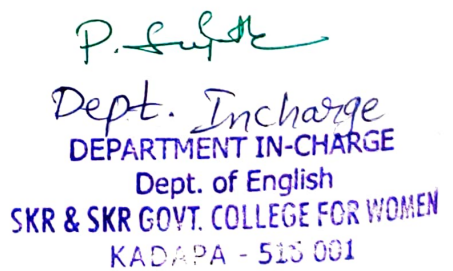 P.
Dept. Incharge
DEPARTMENT IN-CHARGE
Dept. of English
SKR & SKR GOVT. COLLEGE FOR WOMEN
KADAPA - 516 001